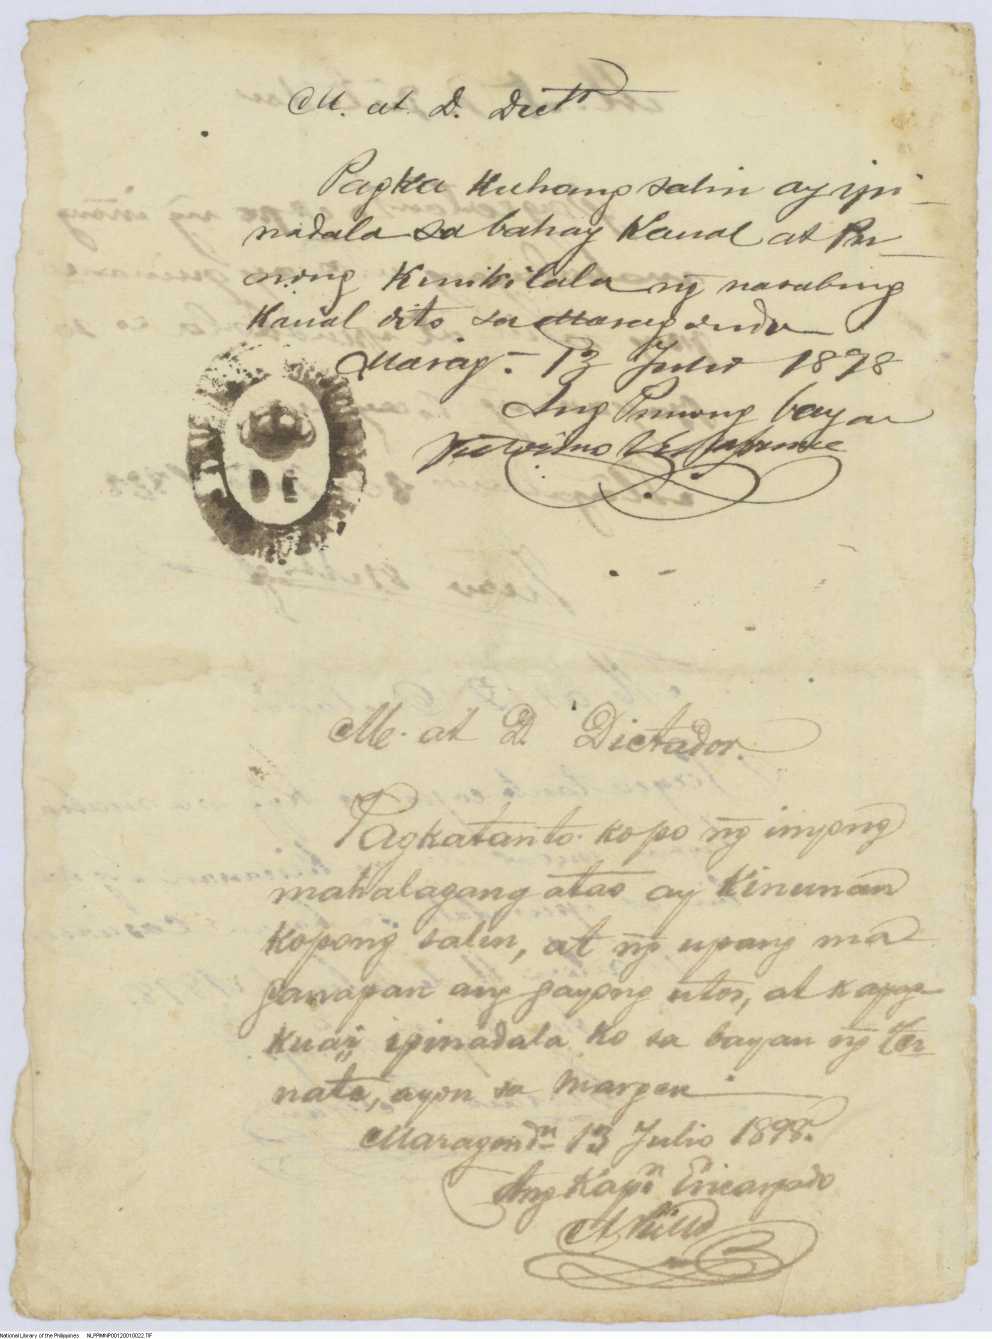 M. at D. Dictr
Pagka kuhang salin ay ipi
nadala sa bahay Kaual at Pu
nong Kinikilala ng̃ nasabing
Kaual dito sa Maragondon
Marag. 13 Julio 1898
Ang Punong bayan
Victorino
M. at D. Dictador.
Pagkatanto kopo ng̃ inyong
mahalagang atas ay kinunan
kopong salin, at ng̃ upang ma
ganapan ang gayong utos, at kapag
kuai, ipinadala ko sa bayan ng̃ Ter
nate, ayon sa margen
Maragondn 13 Julio 1898.
Ang Kapn Encargado
National Library of the Philippines NLPPIMNP00120010022.TIF